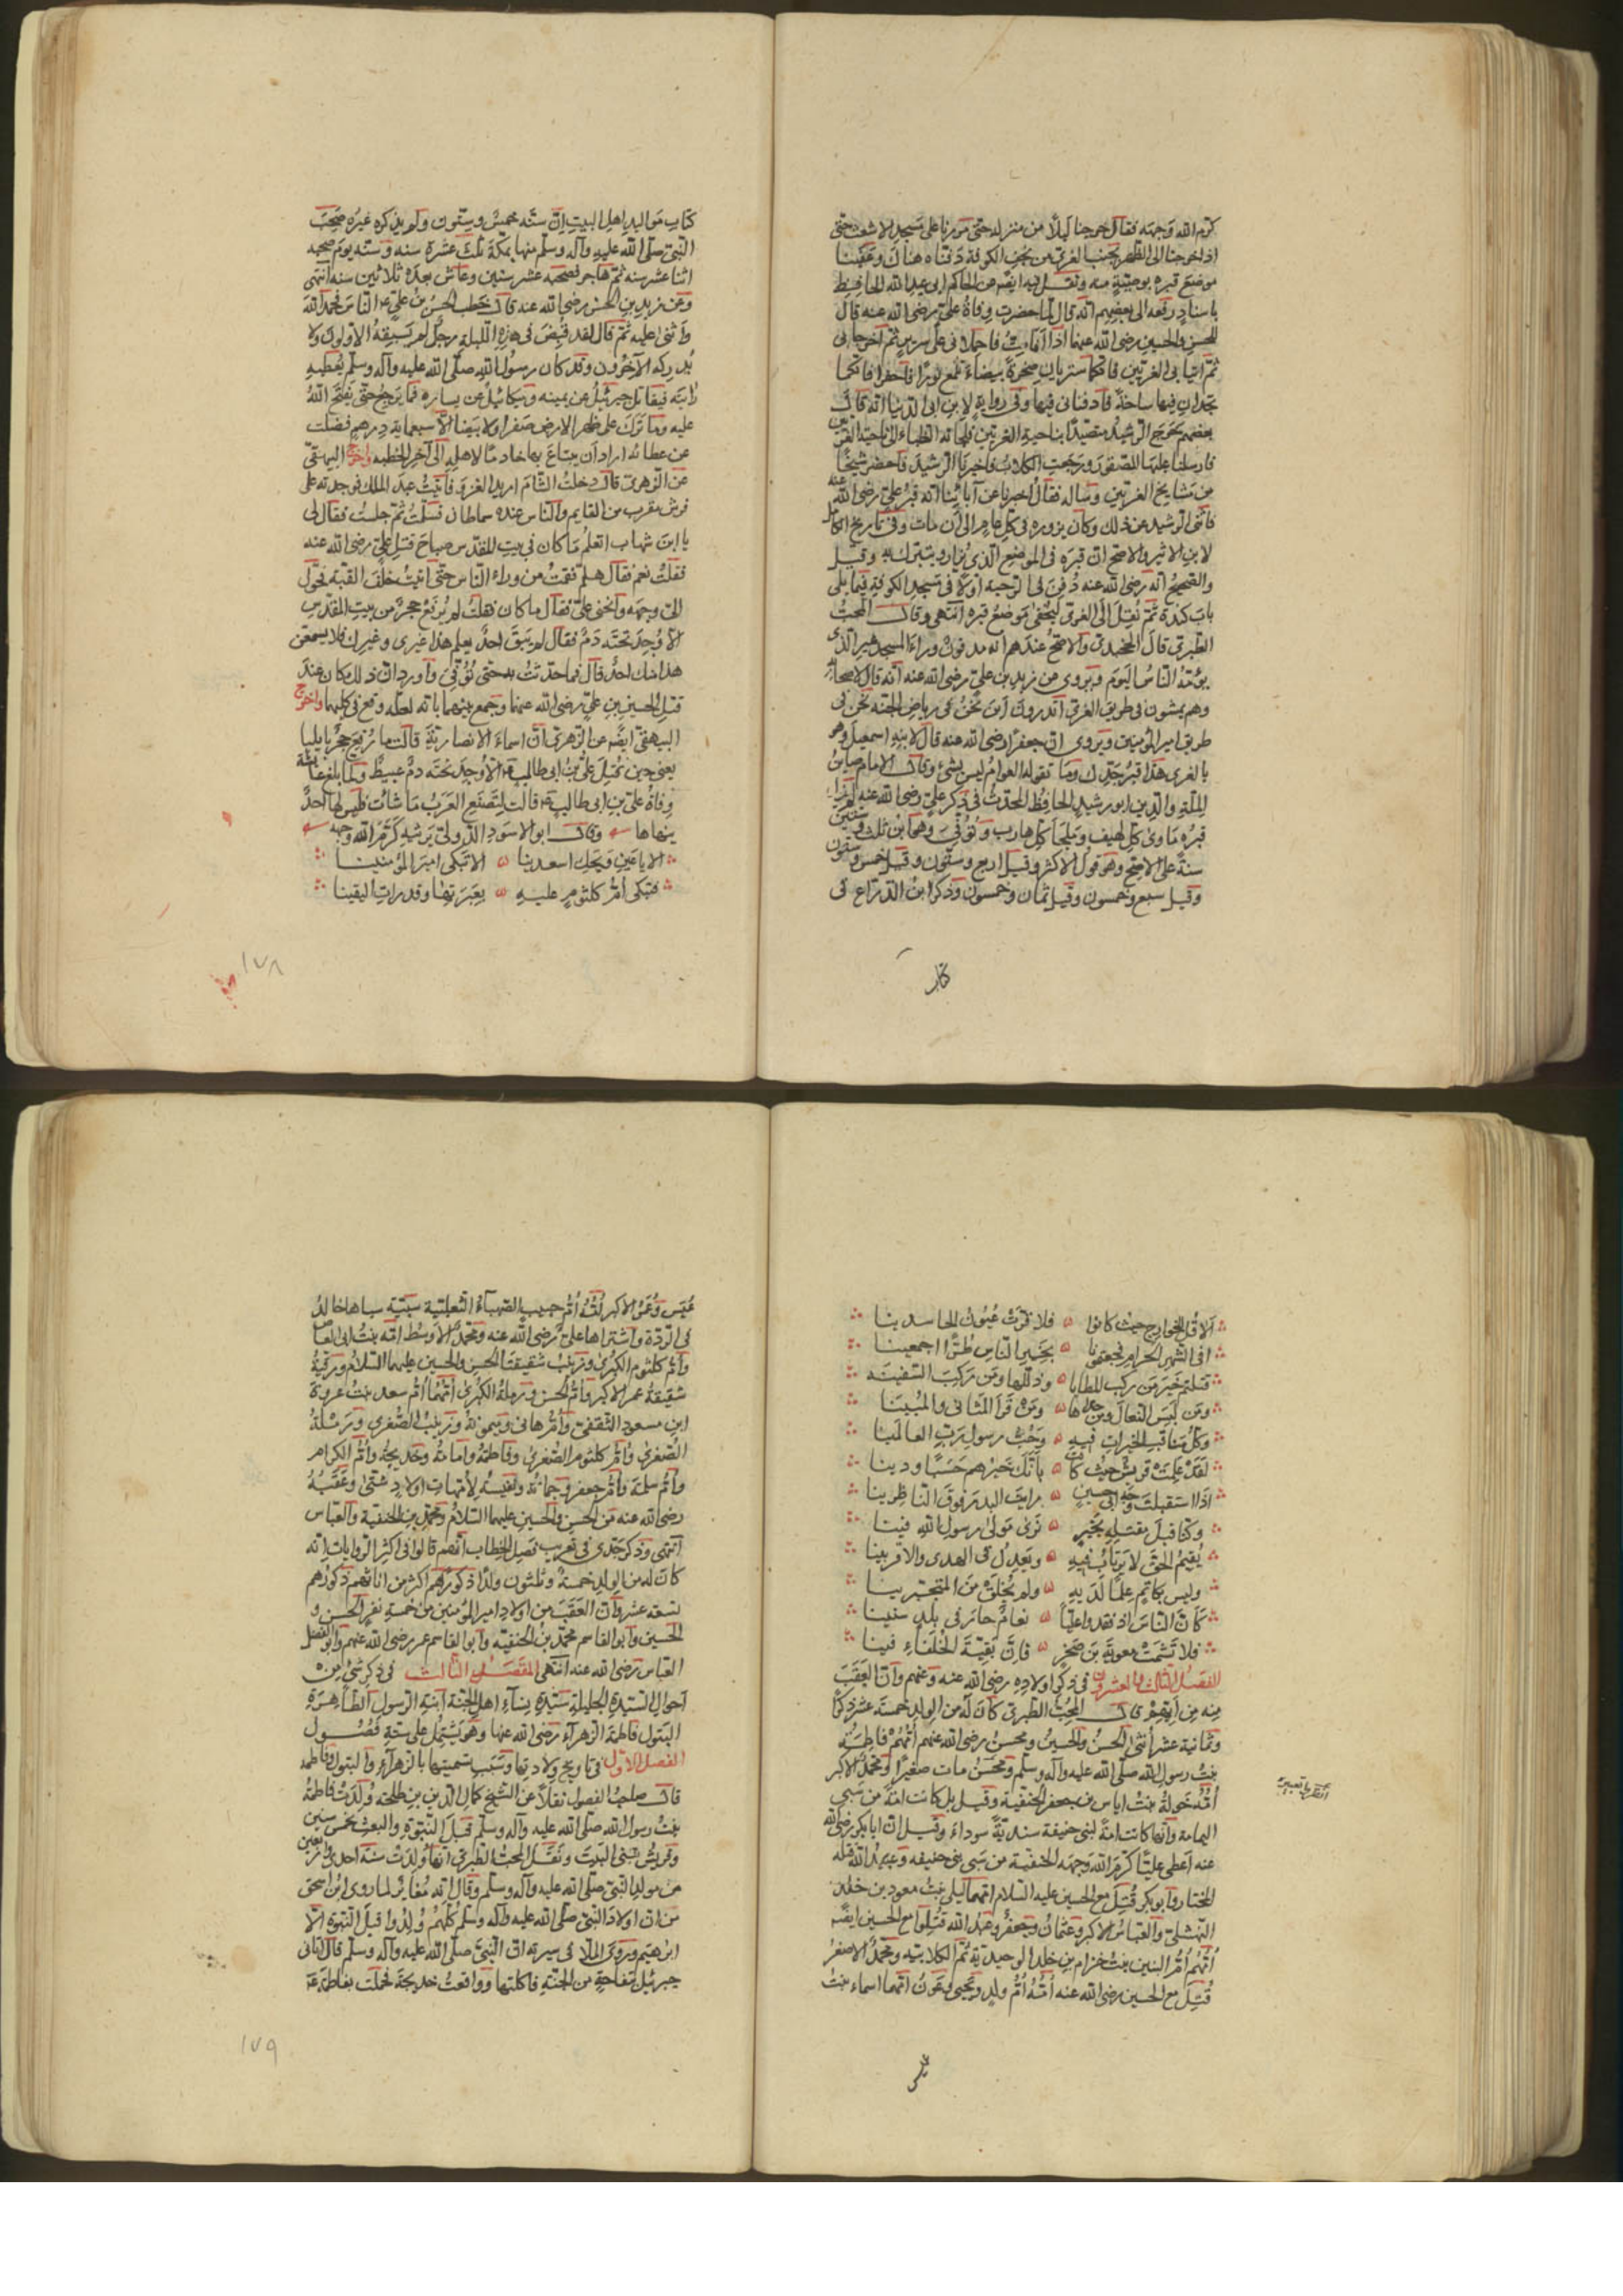 كرّم الله وجهه فقال خرجنا ليلًا من منزله حتى مررنا على مسجد الاشعث حتى
اذا خرجنا الى الظهر بجنب الغرى من نجف الكوفة دفناه هناك وعقينا
موضع قبره بوصيّة منه ونقل فيه ايضًا عن الحاكم ابى عبد الله الحافظ
باسناد رفعه الى بعضهم انّه قال لما حضرت وفاة علىّ رضى الله عنه قال
للحسن والحسين رضى الله عنهما اذا انا متّ فاحملانى على سرير ثمّ اخرجانى
ثمّ اتيا بى الغريّين فانكما ستريان صخرةً بيضاء تلمع نورًا فاحفرا فانكما
تجدان فيها ساحة فادفنانى فيها وفى رواية لابن ابى الدنيا انّه قال
بعضهم خرج الرشيد متصيّدًا بناحية الغريّين فلجات الظباء الى ناحية الغريّين
فارسلنا عليها الصقور ورجعت الكلاب فاخبرنا الرشيد فاحضر شيخًا
من مشايخ الغريّين وساله فقال اخبرنا عن آبائنا انّه قبر علىّ رضى الله عنه
الرشيد عند ذلك وكان يزوره فى كل عام الى ان مات وفى تاريخ الكامل
لابن الاثير والاصح انّ قبره فى الموضع الذى يزار ويتبرّك به وقيل
والصحيح انّه رضى الله عنه دفن فى الرحبة اوّلًا فى مسجد الكوفة فيما يلى
باب كندة ثمّ نقل الى الغرى ليخفى موضع قبره انتهى وقال المحبّ
الطبرى قال الخجندى والاصحّ عندهم انّه مدفون وراء المسجد غير الذى
يؤمّه الناس اليوم ويروى عن زيد بن على رضى الله عنه انّه قال لاصحابه
وهم يمشون فى طريق الغرى اتدرون اين نحن نحن فى رياض الجنة نحن فى
طريق امير المؤمنين ويروى ان جعفرًا رضى الله عنه قال لابنه اسمعيل وهو
بالغرى هذا قبر جدّك وما تقوله العوام ليس بشئ وقال الامام صاين
الملّة والدين ابو رشيد الحافظ المحدّث فى ذكر علىّ رضى الله عنه
قبره ماوى كلّ لهيف وملجأ كلّ هارب وتوفّى وهو ابن ثلث وستين
سنة على الاصحّ وهو قول الاكثر وقيل اربع وستّون وقيل خمس وستون
وقيل سبع وخمسون وقيل ثمان وخمسون وذكر ابن الذراع فى
كتاب
كتاب مواليد اهل البيت انّ سنّه خمس وستّون ولم يذكره غيره صحب
النبىّ صلّى الله عليه وآله وسلّم منها بمكة ثلث عشرة سنه وسنّه يوم صحبه
اثنا عشر سنه ثمّ هاجر فصحبه عشر سنين وعاش بعده ثلاثين سنه انتهى
وعن زيد بن الحسن رضى الله عنه قال خطب الحسن بن علىّ الناس فحمد الله
واثنى عليه ثمّ قال لقد قبض فى هذه الليلة رجل لم يسبقه الاوّلون ولا
يدركه الآخرون وقد كان رسول الله صلّى الله عليه وآله وسلّم يعطيه
رايته فيقاتل جبرئيل عن يمينه وميكائيل عن يساره فما يرجع حتّى يفتح الله
عليه وما ترك على ظهر الارض صفرا ولا بيضا الّا سبعماية درهم فضلت
عن عطائه اراد ان يبتاع بها خادمًا لاهله الى آخر الخطبه واخرج البيهقى
عن الزهرى قال دخلت الشام اريد الغزو فاتيت عبد الملك فوجدته على
فرش بقرب من القايم والناس عنده سماطان فسلّمت ثمّ جلست فقال لى
يا ابن شهاب اتعلم ما كان فى بيت المقدس صباح قتل علىّ رضى الله عنه
فقلت نعم فقال هلمّ فقمت من وراء الناس حتّى اتيت خلف القبّة فحوّل
الىّ وجهه وانحنى علىّ فقال ما كان فقلت لم يرفع حجر من بيت المقدس
الّا وجد تحته دم فقال لم يبق احد يعلم هذا غيرى وغيرك فلا يسمعنّ
هذا منك احد قال فما حدّثت به حتى توفّى واورد انّ ذلك كان عند
قتل الحسين بن علىّ رضى الله عنهما وجمع بينهما بانّه لعلّه وقع فى كليهما واخرج
البيهقى ايضًا عن الزهرىّ انّ اسماء الانصارية قالت ما رفع حجر بايليا
يعنى حين قتل علىّ بن ابى طالب الّا وجد تحته دم عبيط ولما بلغ عائشة
وفاة علىّ بن ابى طالب قالت لتصنع العرب ما شائت فليس لها احد
ينهاها وقال ابو الاسود الدؤلى يرثيه كرّم الله وجهه
الا يا عين ويحك اسعدينا الا تبكى امير المؤمنينا
فتبكى امّ كلثوم عليه بعبرتها وقد رات اليقينا
١٧٨
الا قل للخوارج حيث كانوا فلا قرّت عيون الحاسدينا
افى الشهر الحرام فجعتمونا بخير الناس طرًّا اجمعينا
قتلتم خير من ركب المطايا وذلّلها ومن ركب السفينه
ومن لبس النعال ومن حذاها ومن قرأ المثانى والمبينا
وكلّ مناقب الخيرات فيه وحبّ رسول ربّ العالمينا
لقد علمت قريش حيث كانت بانّك خيرهم حسبًا ودينا
اذا استقبلت وجه ابى حسين رايت البدر فوق الناظرينا
وكنا قبل مقتله بخير نرى مولى رسول الله فينا
يقيم الحق لا يرتاب فيه ويعدل فى العدى والاقربينا
وليس بكاتم علمًا لديه ولم يخلق من المتجبّرينا
كانّ الناس اذ فقدوا عليًّا نعام حار فى بلد سنينا
فلا تشمت معوية بن صخر فان بقيّة الخلفاء فينا
الفصل الثالث والعشرون فى ذكر اولاده رضى الله عنه وعنهم وان العقب
منه من ايّهم قال المحبّ الطبرى كان له من الولد خمسة عشر ذكرًا
وثمانية عشر انثى الحسن والحسين ومحسن رضى الله عنهم امّهم فاطمة
بنت رسول الله صلّى الله عليه وآله وسلّم ومحسن مات صغيرًا ومحمد الاكبر
امّه خولة بنت اياس بن جعفر الحنفية وقيل بل كانت امة من سبى
اليمامة وانّها كانت امة لبنى حنيفة سندية سوداء وقيل ان ابا بكر رضى الله
عنه اعطى عليًّا كرّم الله وجهه الحنفية من سبى بنى حنيفه وعبيد الله قتله
المختار وابو بكر قتل مع الحسين عليه السلام امّهما ليلى بنت معود بن خلد
النهشلى والعباس الاكبر وعثمان وجعفر وعبد الله قتلوا مع الحسين ايضًا
امّهم امّ البنين بنت حزام بن خلد الوحيدية ثمّ الكلابيه ومحمد الاصغر
قتل مع الحسين رضى الله عنه امّه امّ ولد ويحيى وعون امّهما اسماء بنت
عميس
عميس وعمر الاكبر امّه امّ حبيب الصهباء الثعلبية سبيّة سباها خالد
فى الردة واشتراها علىّ رضى الله عنه ومحمد الاوسط امّه بنت ابى العاص
وامّ كلثوم الكبرى وزينب شقيقتا الحسن والحسين عليهما السلام ورقية
شقيقة عمر الاكبر وامّ الحسن ورملة الكبرى امّهما امّ سعد بنت عروة
ابن مسعود الثقفى وامّ هانى وميمونة وزينب الصغرى ورملة
الصغرى وامّ كلثوم الصغرى وفاطمة وامامة وخديجة وامّ الكرام
وامّ سلمة وامّ جعفر وجمانة ونفيسة لامّهات اولاد شتى وعقبه
رضى الله عنه من الحسن والحسين عليهما السلام ومحمد بن الحنفية والعباس
انتهى وذكر جدّى فى تعريب فصل الخطاب انّهم قالوا فى اكثر الروايات انّه
كان له من الولد خمسة وثلثون ولدًا ذكورهم اكثر من اناثهم ذكورهم
تسعة عشر وان العقب من اولاد امير المؤمنين من خمسة نفر الحسن و
الحسين وابو القاسم محمد بن الحنفيّه وابو القاسم عمر رضى الله عنهم وابو الفضل
العباس رضى الله عنه انتهى المقصد الثالث فى ذكر شئ من
احوال السيّدة الجليلة سيّدة نساء اهل الجنّة ابنة الرسول الطاهرة
البتول فاطمة الزهراء رضى الله عنها وهو يشتمل على ستّة فصول
الفصل الاوّل فى تاريخ ولادتها وسبب تسميتها بالزهراء والبتول وفاطمه
قال صاحب الفصول نقلًا عن الشيخ كمال الدين بن طلحة ولدت فاطمة
بنت رسول الله صلّى الله عليه وآله وسلّم قبل النبوّة والبعث بخمس سنين
وقريش تبنى البيت ونقل المحبّ الطبرى انّها ولدت سنة احدى واربعين
من مولد النبىّ صلّى الله عليه وآله وسلّم وقال انّه مغاير لما روى ابن اسحق
من ان اولاد النبىّ صلّى الله عليه وآله وسلّم كلهم ولدوا قبل النبوّة الّا
ابرهيم وروى الملّا فى سيرته انّ النبىّ صلّى الله عليه وآله وسلّم قال اتانى
جبرئيل بتفاحة من الجنّة فاكلتها وواقعت خديجة فحملت بفاطمة
١٧٩